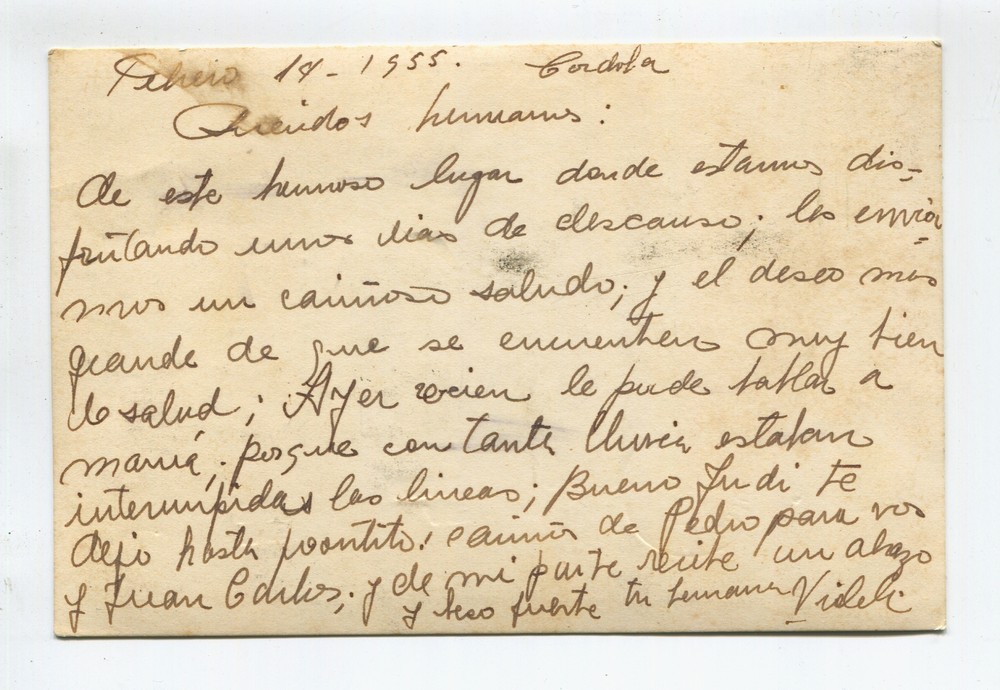 Febrero 18 - 1955. Cordoba
Queridos hermanos:
de este hermoso lugar donde estamos dis-
frutando unos dias de descanso; les envia-
mos un cariñoso saludo; y el deseo mas
grande de que se encuentren muy bien
de salud; Ayer recien le pude hablar a
mamá; porque con tanta lluvia estaban
interrumpidas las lineas; Bueno Judi te
dejo hasta prontito; cariños de Pedro para vos
y Juan Carlos; y de mi parte recibe un abrazo
y beso fuerte tu hermana